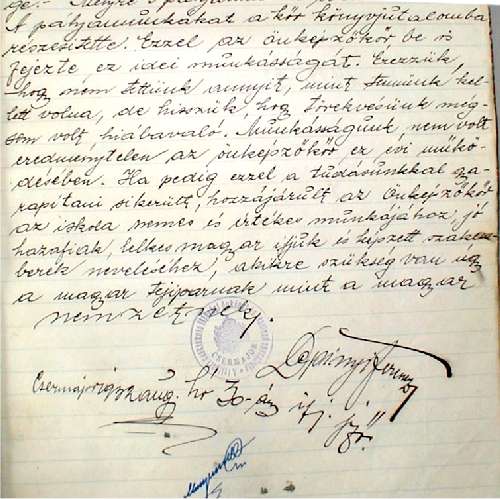 A pályamunkákat a kör könyvjutalomba
részesítette. Ezzel az önképzőkör be is
fejezte, ez idei munkásságát. Érezzük,
hog nem tettünk annyit, mint tennünk kel-
lett volna, de hisszük, hog törekvésünk még-
sem volt, hiábavaló. Munkásságunk, nem volt
eredménytelen az önképzőkör, ez évi műkö-
désében. Ha pedig ezzel a tudásunkkal ga-
rapitani sikerült, hozzájárult az Önképzőkör
az iskola nemes és értékes munkájához, jó
hazafiak, lelkes magyar ifjuk és képzett szakem-
berek neveléséhez, akikre szükség van ug
a magyar tejiparnak mint a magyar
nemzetnek.
CSERMAJOR
Csermajor aug. hó 30-án ifj.